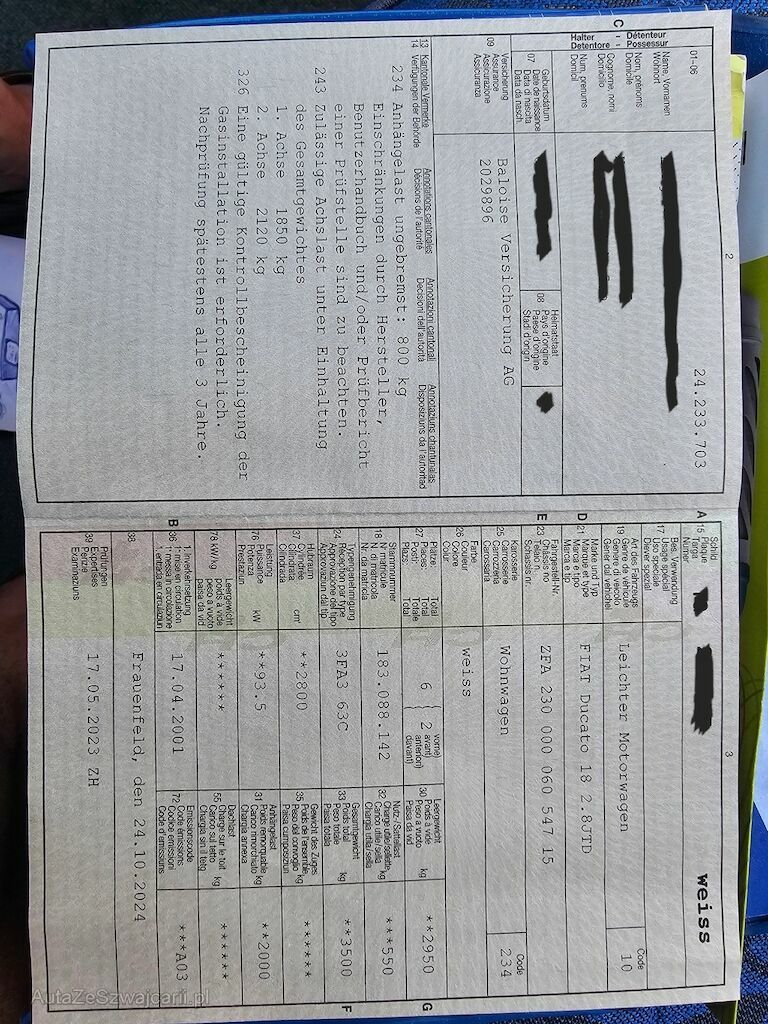 24.233.703
2
01-06
Name, Vornamen
Wohnort
Nom, prénoms
Domicile
Cognome, nomi
Domicilio
Num, prenums
Domicil
C - Détenteur - Possessur
Halter
Detentore
Geburtsdatum
07 Date de naissance
Data di nascita
Data da nasch.
Heimatstaat
08 Pays d'origine
Paese d'origine
Stadi d'origin
Versicherung
09 Assurance
Assicurazione
Assicuranza
Baloise Versicherung AG
2029896
13 Kantonale Vermerke
14 Verfügungen der Behörde
Annotations cantonales
Décisions de l'autorité
Annotazioni cantonali
Decisioni dell'autorità
Annotaziuns chantunalas
Disposiziuns da l'autoritad
234 Anhängelast ungebremst: 800 kg
Einschränkungen durch Hersteller,
Benutzerhandbuch und/oder Prüfbericht
einer Prüfstelle sind zu beachten.
243 Zulässige Achslast unter Einhaltung
des Gesamtgewichtes
1. Achse 1850 kg
2. Achse 2120 kg
326 Eine gültige Kontrollbescheinigung der
Gasinstallation ist erforderlich.
Nachprüfung spätestens alle 3 Jahre.
3
A
Schild
15 Plaque
Targa
Numer
weiss
Bes. Verwendung
17 Usage spécial
Uso speciale
Diever spezial
Art des Fahrzeugs
19 Genre de véhicule
Genere di veicolo
Gener da vehichel
Leichter Motorwagen
Code
10
D
Marke und Typ
21 Marque et type
Marca e tipo
Marca e tip
FIAT Ducato 18 2.8JTD
E
Fahrgestell-Nr.
23 Châssis no
Telaio n.
Schassis nr.
ZFA 230 000 060 547 15
Karosserie
25 Carrosserie
Carrozzeria
Carossaria
Wohnwagen
Code
234
Farbe
26 Couleur
Colore
Colur
weiss
Plätze: Total
27 Places: Total
Posti: Totale
Plazs: Total
6
vorne)
2 avant)
anteriori)
davant)
Leergewicht
30 Poids à vide kg
Peso a vuoto
Paisa da vid
**2950
G
Stammnummer
18 N matricule
N. di matricola
Nr. da matricla
183.088.142
Nutz-/Sattellast
32 Charge utile/sellette kg
Carico utile/sella
Chargia utila/sella
***550
Typengenehmigung
24 Réception par type
Approvazione del tipo
Approvaziun dal tip
3FA3 63C
Gesamtgewicht
33 Poids total kg
Peso totale
Paisa totala
**3500
F
Hubraum
37 Cylindrée cm³
Cilindrata
Cilindrada
**2800
Gewicht des Zuges
35 Poids de l'ensemble kg
Peso del convoglio
Paisa cumposiziun
******
Leistung
76 Puissance kW
Potenza
Prestaziun
**93.5
Anhängelast
31 Poids remorquable kg
Carico rimorchiato
Chargia annexa
**2000
Leergewicht
78 kW/kg poids à vide
peso a vuoto
paisa da vid
******
Dachlast
55 Charge sur le toit kg
Carico sul tetto
Chargia sin il tetg
******
B
1. Inverkehrsetzung
36 1re mise en circulation
1. messa in circolazione
1. entrada en circulaziun
17.04.2001
Emissionscode
72 Code émissions
Codice emissioni
Code d'emissiuns
***A03
38
Frauenfeld, den 24.10.2024
Prüfungen
39 Expertises
Perizie
Examinaziuns
17.05.2023 ZH
AutaZeSzwajcarii.pl